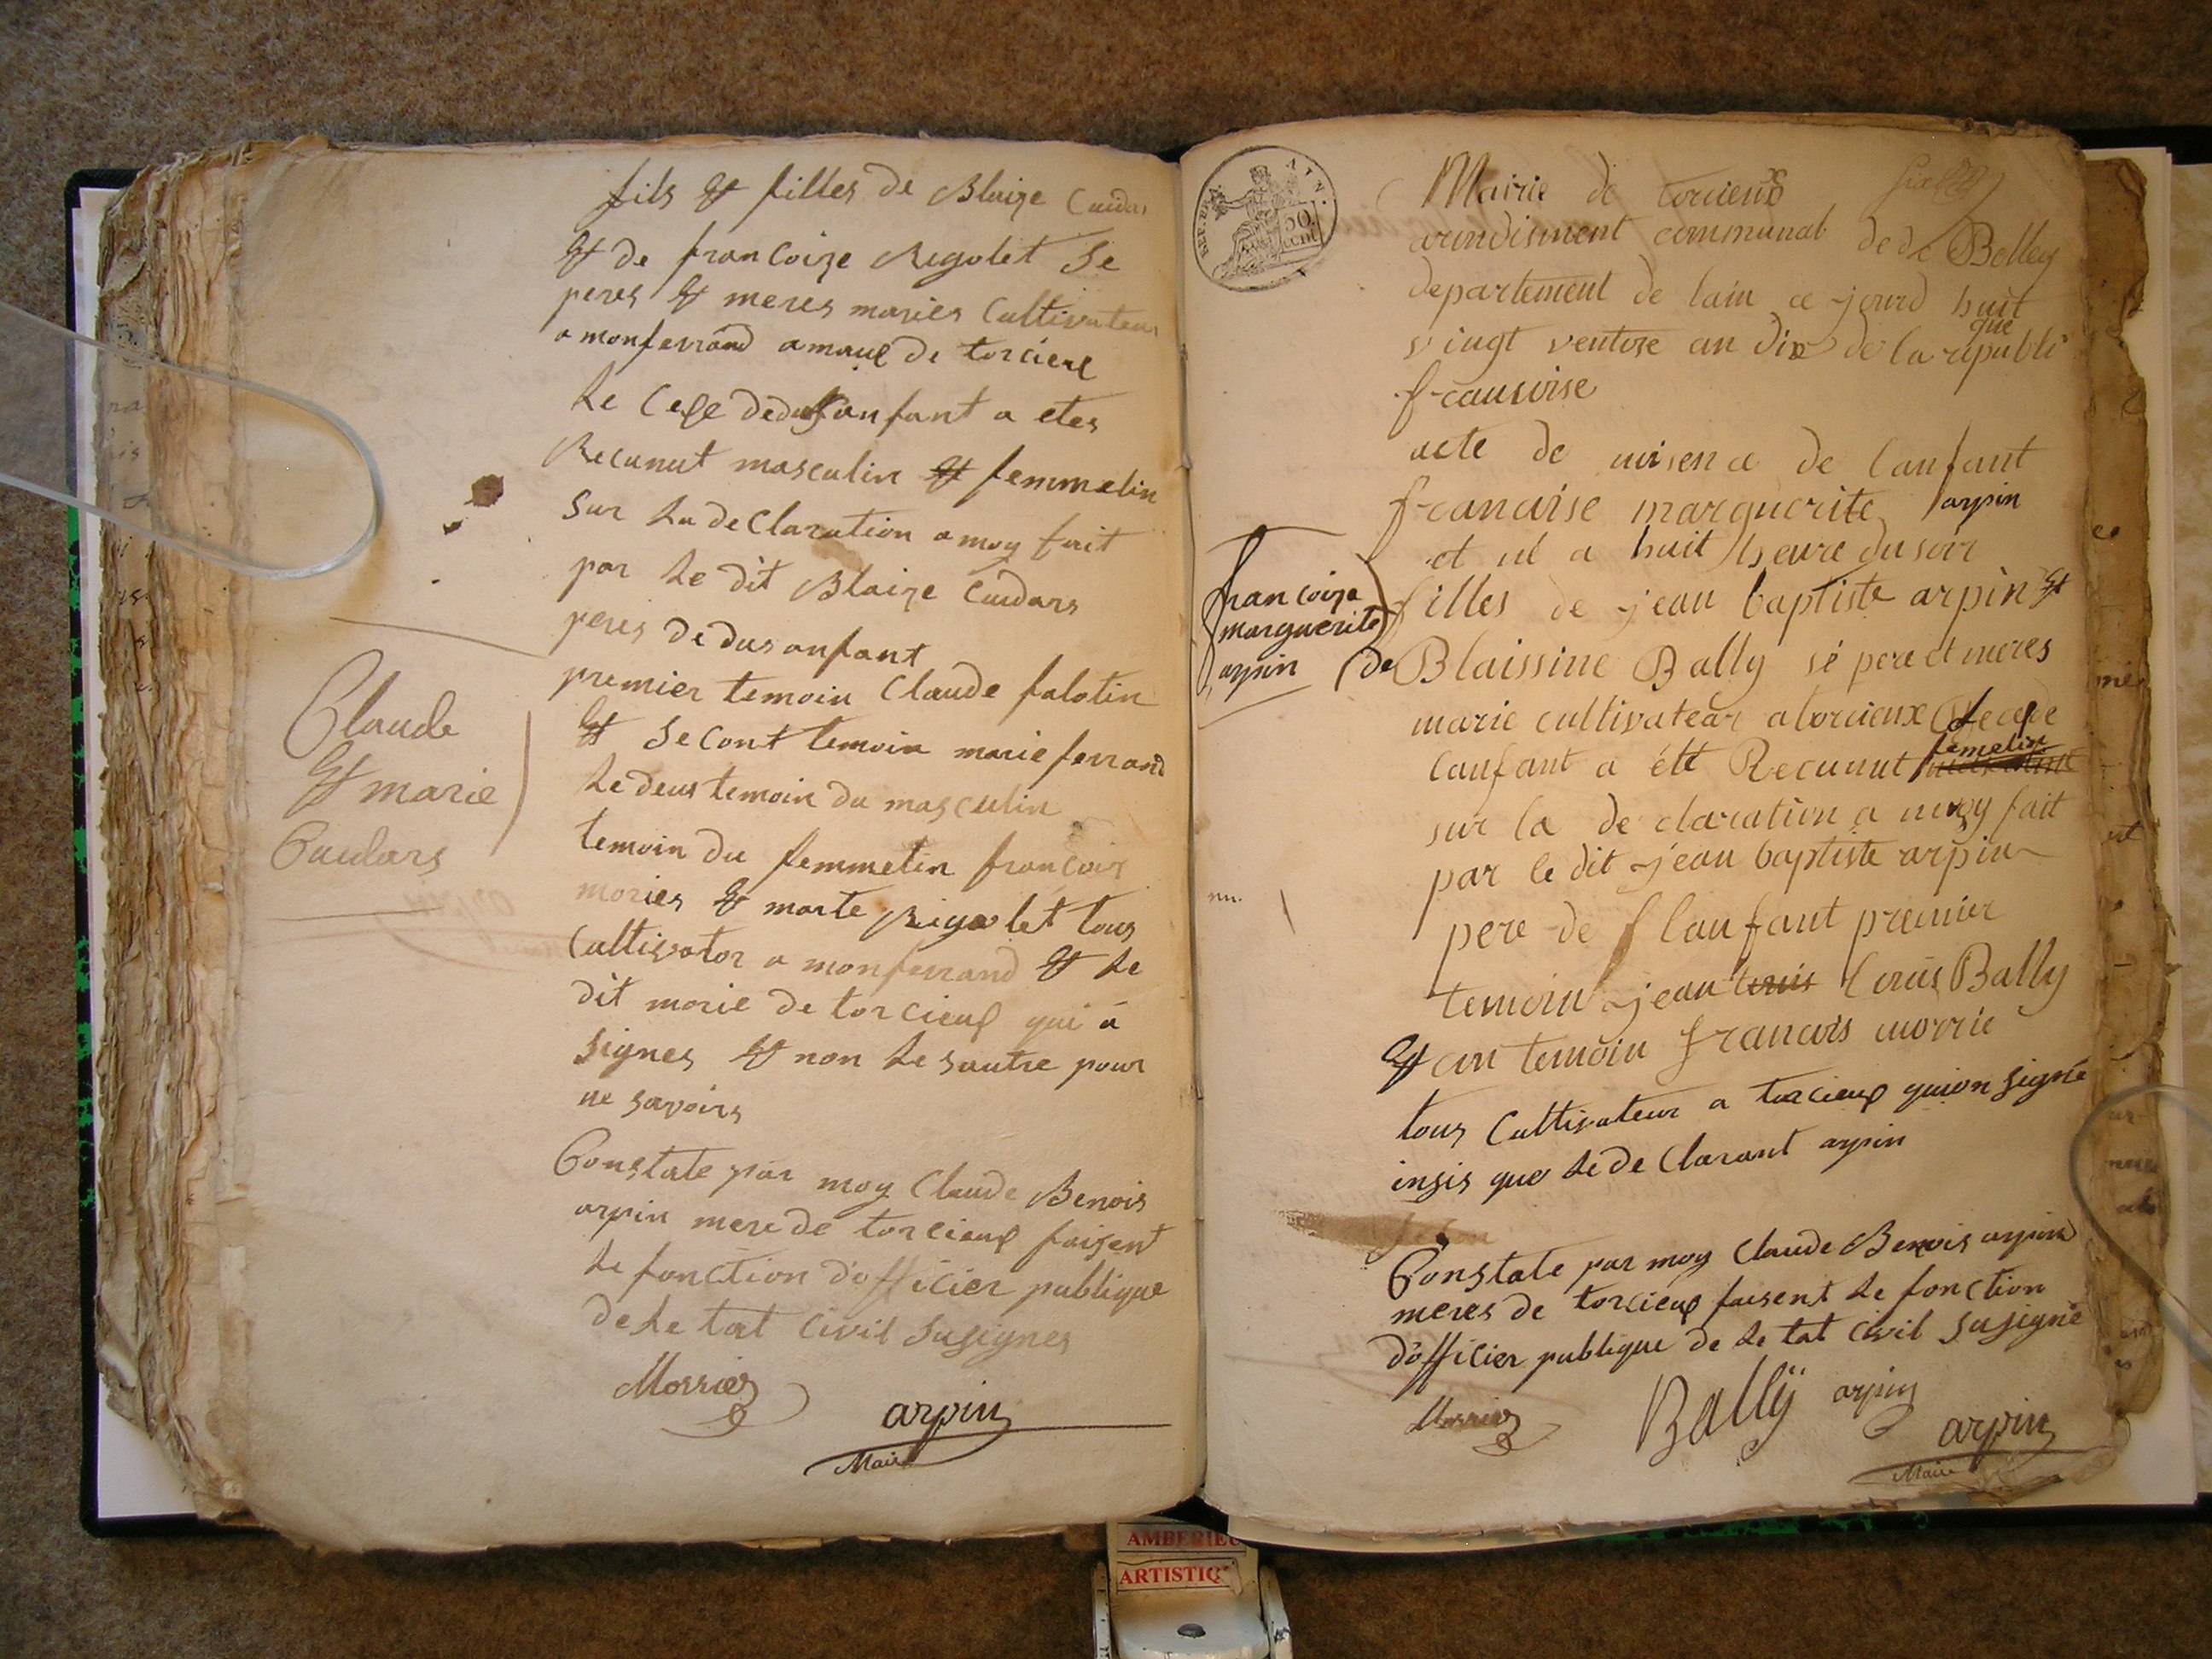 fils & filles de Blaize Cuidars
& de francoize Rigolet Se
peres & meres maries Cultivateur
a monferrand a maux de torcieux
Le Cexe dedus anfant a etes
Recunut masculin & femmelin
Sur La de Claration a moy fait
par Le dit Blaize Cuidars
peres de dus anfant
premier temoin Claude falotin
& Secont temoin marie ferrand
Le deus temoin du masculin
temoin du femmelin francois
mories & marte Rigolet tous
Cultivator a monferrand & Le
dit morie de torcieux qui à
signes & non Le sautre pour
ne savoirs
Constate par moy Claude Benois
arpin mere de torcieux faisent
Le fonction d'officier publique
de Le tat Civil Susignes
Morrier
arpin
Maire
Claude
& marie
Cuidars
REP. FRA.
AIN.
50
CENT
Mairie de torcieux
arondisment communal de de Belley
departement de lain ce jourd huit
vingt ventose an dix de la republi
que
francoise
acte de naisence de lanfant
francaise marguerite arpin
et né a huit heure du soir
filles de jean baptiste arpin &
de Blaissine Bally sé pere et meres
marie cultivatear a torcieux Le cexe
lanfant a étt Recunut femelin
sur la de claration a moy fait
par le dit jean baptiste arpin
pere de lanfant premier
temoin jean louis louis Bally
& an temoin francois morrie
tous Cultivateur a torcieux quion signé
insis que Le de Clarant arpin
Constate par moy Claude Benois arpin
meres de torcieux faisent Le fonction
d'officier publique de Le tat Civil Susigné
Morrier
Bally
arpin
arpin
Maire
francoize
marguerite
arpin
AMBERIEU
ARTISTIQ